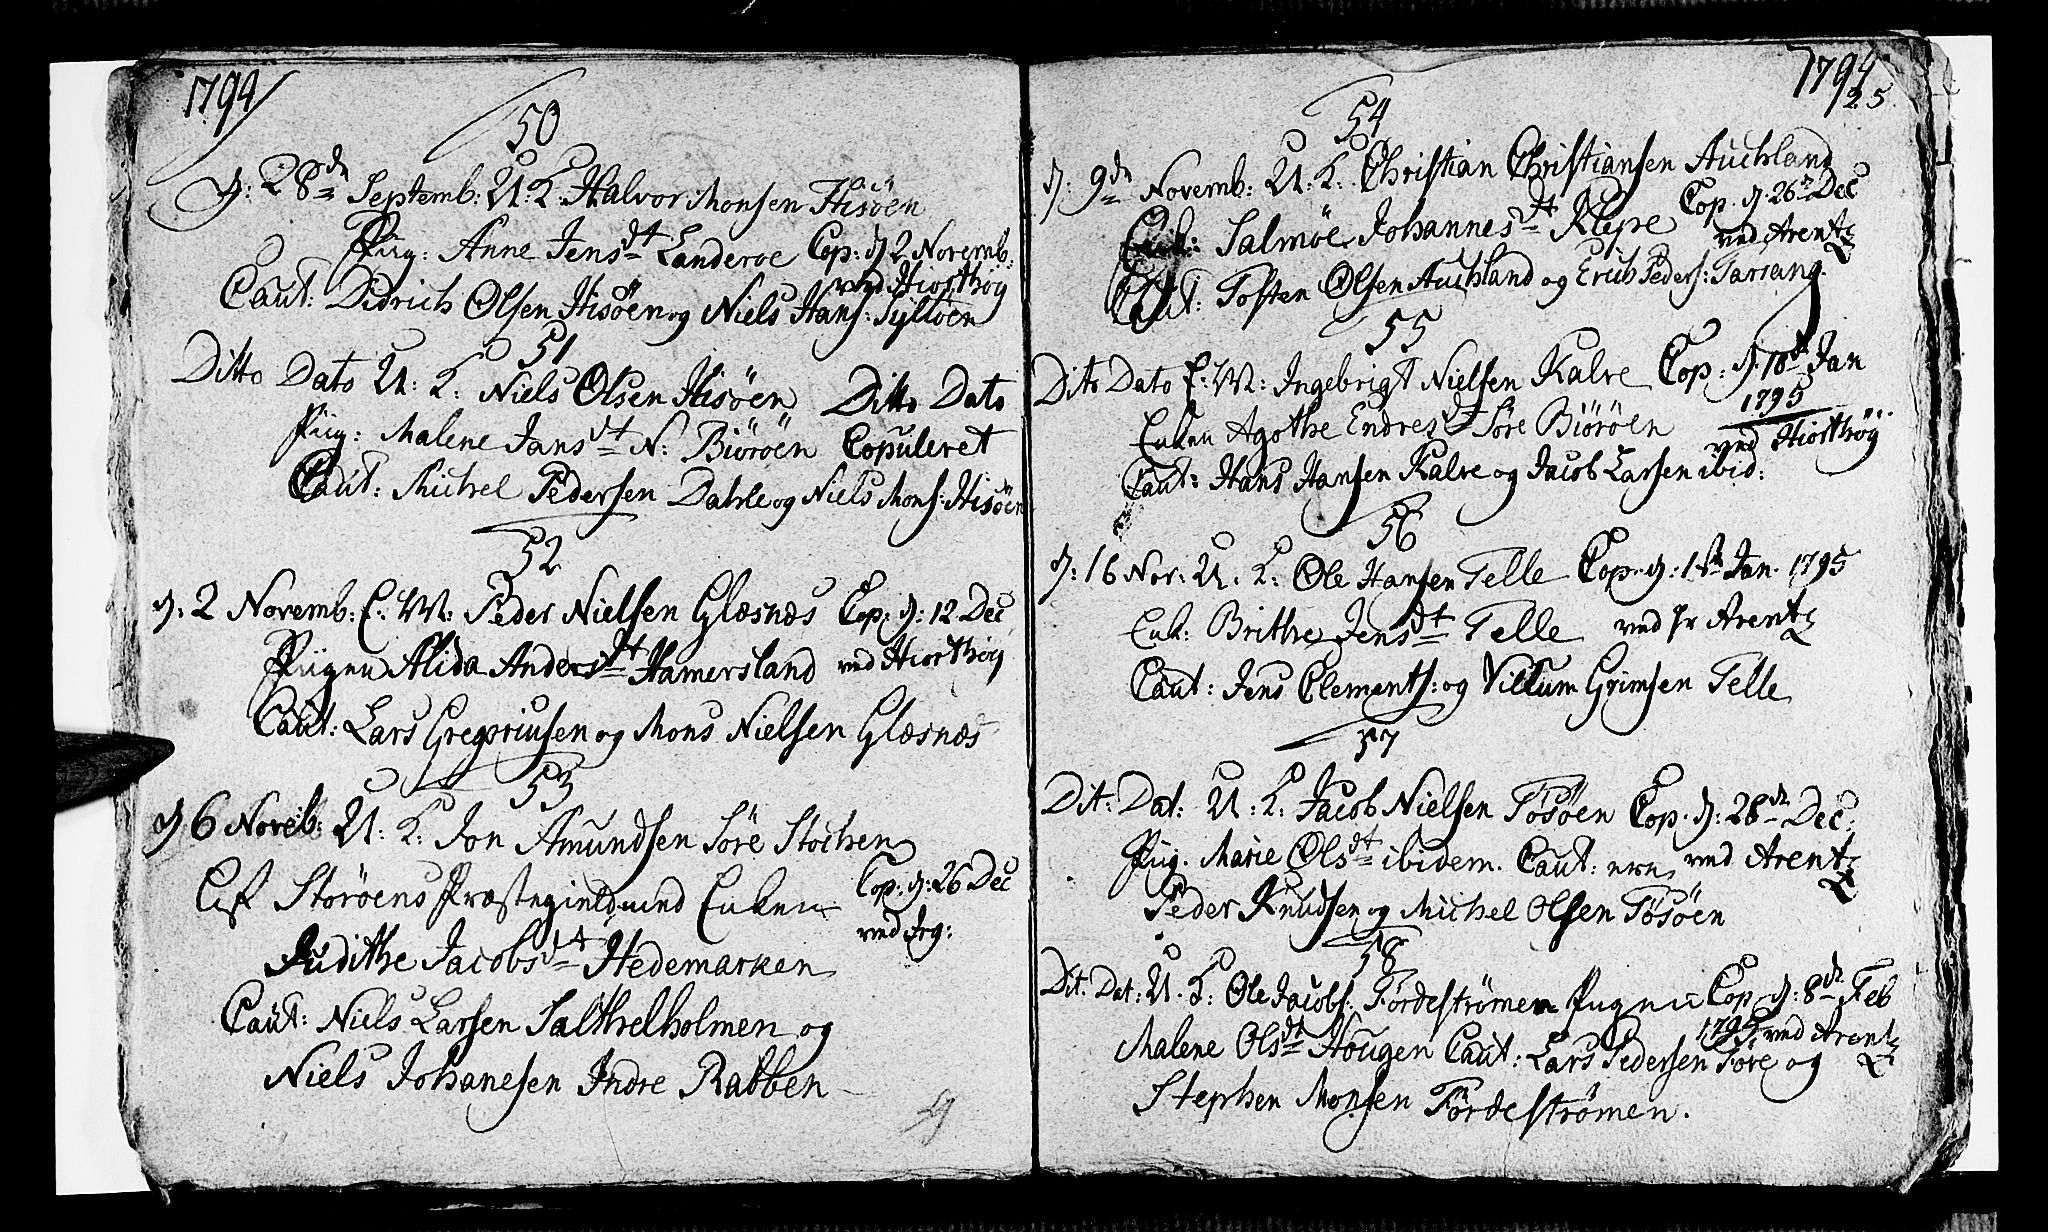 1794
50
d: 28de Septemb: U: K. Halvor Monsen Hisöen
Piig: Anne Jensdt Landeroe Cop: d 2 Novemb:
ved Hiorthög
Caut: Didrich Olsen Hisöen og Niels Hans: Syltöen
51
Ditto Dato U: K: Niels Olsen Hisöen Ditto Dato
Piig: Malene Jansdt N: Biöröen Copuleret
Caut: Michel Pedersen Dahle og Niels Mons: Hisöen
52
d: 2 Novemb: E. M: Peder Nielsen Glæsnæs Cop: d: 12 Dec
Piigen Alida Andersdt Hamersland ved Hiorthög
Caut: Lars Gregoriusen og Mons Nielsen Glæsnæs
53
d 6 Noveb: U: K: Jon Amundsen Söre Stochen
Cop: d: 26 Dec
Storöens Præstegield med Enken
ved Irg:
Judithe Jacobsdt Hedemarken
Caut: Niels Larsen Salthelholmen og
Niels Johanesen Indre Rabben
1794
25
54
d: 9de Novemb: U: K: Christian Christiansen Auchland
Cop. d. 26de Dec
Enk: Salmöe Johannesdt Kleppe
ved Arentz
Caut: Tosten Olsen Auchland og Erich Peders: Tarrang.
55
Dito Dato E: M: Ingebrigt Nielsen Kalve Cop: d. 18de Jan
1795
Enken Agothe Endresdt Söre Biöröen
ved Hiorthög
Caut: Hans Hansen Kalve og Jacob Larsen ibid:
56
d: 16 Nov: U. K: Ole Hansen Telle Cop. d: 1ste Jan. 1795
Enk: Brithe Jensdt Telle ved hr Arentz
Caut: Jens Clements: og Villum Grimsen Telle
57
Dit: Dat: U: K: Jacob Nielsen Tösöen Cop. d: 28de Dec:
Piig. Marie Olsdt ibidem. Caut: ere ved Arentz
Peder Knudsen og Michel Olsen Tösöen
58
Dit. Dat: U. K: Ole Jacobs: Fördeströmen Pigen Cop d: 8de Feb
1795, ved Arentz
Malene Olsdt Hougen Caut: Lars Pedersen Fore og
Stephen Monsen Fördeströmen.